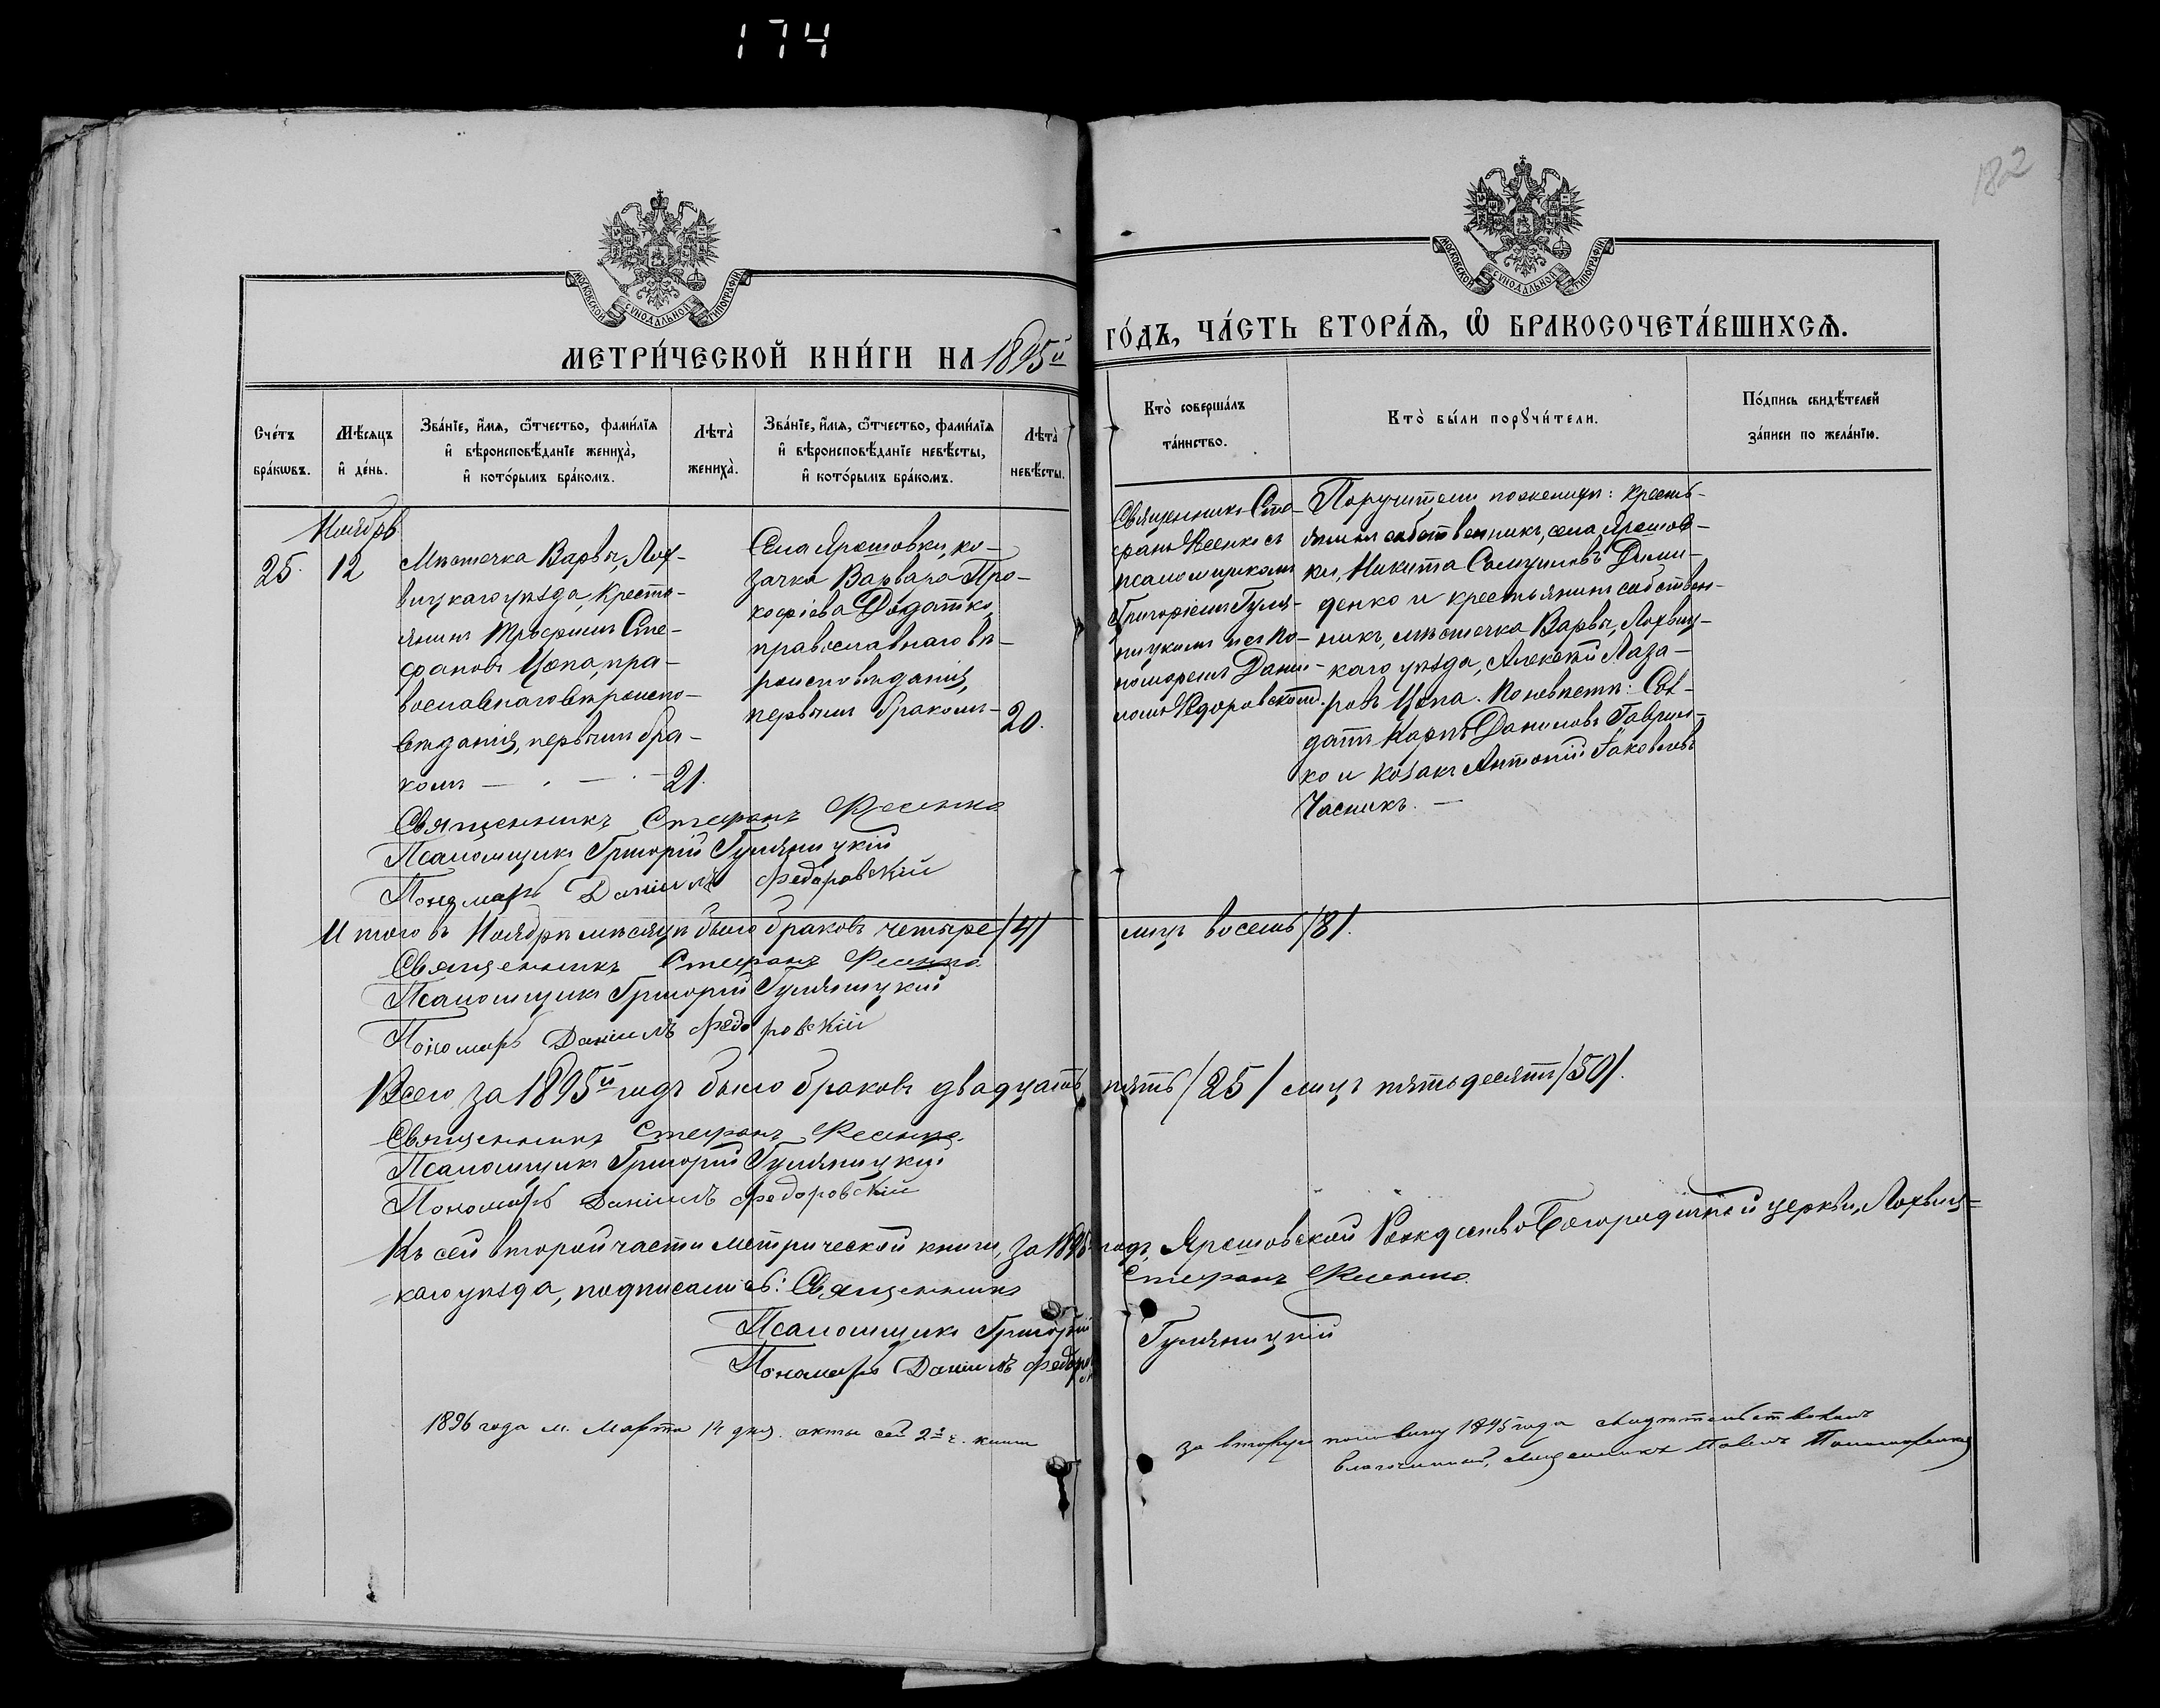 174
182
МОСКОВСКОЙ СУНОДАЛЬНОЙ ТИПОГРАФІИ
МОСКОВСКОЙ СУНОДАЛЬНОЙ ТИПОГРАФІИ
МЕТРИ́ЧЕСКОЙ КНИ́ГИ НА 1895й
ГО́ДЪ, ЧА́СТЬ ВТОРА́Ѧ, Ѡ҆ БРАКОСОЧЕТА́ВШИХСѦ.
Сче́тъ бра́кѡвъ.
Мѣ́сѧцъ и҆ де́нь.
Зва́нїе, и҆́мѧ, ѻ҆́тчество, фами́лїѧ и҆ вѣроисповѣ́данїе жениха̀, и҆ кото́рымъ бра́комъ.
Лѣта̀ жениха̀.
Зва́нїе, и҆́мѧ, ѻ҆́тчество, фами́лїѧ и҆ вѣроисповѣ́данїе невѣ́сты, и҆ кото́рымъ бра́комъ.
Лѣта̀ невѣ́сты.
Кто̀ соверша́лъ та́инство.
Кто̀ бы́ли порꙋчи́тели.
По́дпись свидѣ́телей за́писи по жела́нїю.
Ноябрь
25.
12
Мѣстечка Варвы, Лох-
вицкаго уѣзда, Кресть-
янинъ Трофимъ Сте-
фановъ Цопа, пра-
вославнаго вѣроиспо-
вѣданія, первымъ бра-
комъ
21.
Села Ярошовки, ко-
зачка Варвара Про-
кофіева Додатко,
православнаго вѣ-
роисповѣданія,
первымъ бракомъ
20.
Священникъ Сте-
фанъ Ѳесенко съ
псаломщикомъ
Григоріемъ Гуля-
ницкимъ и съ по-
номаремъ Дани-
ломъ Ѳедоровскимъ.
Поручители по женихѣ: Кресть-
янинъ собственникъ, села Ярошов-
ки, Никита Самуиловъ Деми-
денко и крестьянинъ собствен-
никъ, мѣстечка Варвы, Лохвиц-
каго уѣзда, Алексѣй Лаза-
ровъ Цопа. По невѣстѣ: Сол-
датъ Карпъ Даниловъ Гаврил-
ко и козакъ Антоній Іаковлевъ
Часникъ.
Священникъ Стефанъ Ѳесенко
Псаломщикъ Григорій Гуляницкій
Пономарь Даніилъ Федоровскій
Итого въ Ноябрѣ мѣсяцѣ было браковъ четыре /4/ лицъ восемь /8/.
Священникъ Стефанъ Ѳесенко
Псаломщикъ Григорій Гуляницкій
Пономарь Даніилъ Федоровскій
Всего за 1895й годъ было браковъ двадцать пять /25/ лицъ пятьдесятъ /50/.
Священникъ Стефанъ Ѳесенко
Псаломщикъ Григорій Гуляницкій
Пономарь Даніилъ Федоровскій
Къ сей второй части метрической книги, за 1895 годъ, Ярошовской Рождество Богородичной церкви, Лохвиц-
каго уѣзда, подписались: Священникъ Стефанъ Ѳесенко
Псаломщикъ Григорій Гуляницкій
Пономарь Даніилъ Федоровскій
1896 года м. Марта 14 дня. акты сей 2й ч. книги за вторую половину 1895 года свидѣтельствовалъ
благочинный, священникъ Павелъ